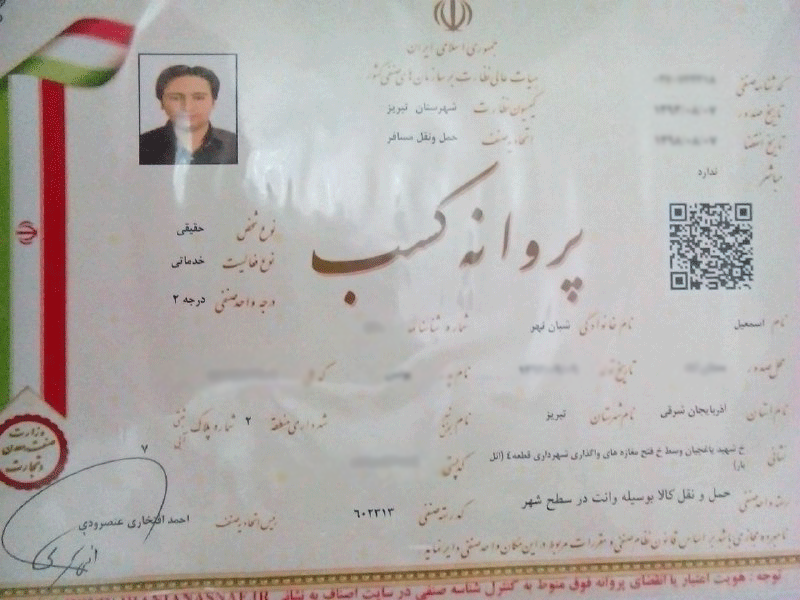 جمهوری اسلامی ایران
هیات عالی نظارت بر سازمان های صنفی کشور
کمیسیون نظارت شهرستان تبریز
اتحادیه صنف حمل ونقل مسافر
شناسه صنفی
تاریخ صدور
تاریخ انقضا
مباشر ندارد
پروانه کسب
نوع شخص حقیقی
نوع فعالیت خدماتی
درجه واحد صنفی درجه ۲
نام اسمعیل نام خانوادگی شبان نهر شماره شناسنامه
محل صدور تاریخ تولد نام پدر کد ملی
نام استان آذربایجان شرقی نام شهرستان تبریز نام بخش شهرداری منطقه ۲ شماره پلاک ثبتی آبی ۷
نشانی خ شهید باغچیان وسط خ فتح مغازه های واگذاری شهرداری قطعه ٤ (اتل بار) کدپستی
رسته واحد صنفی حمل و نقل کالا بوسیله وانت در سطح شهر کد رسته صنفی ۶۰۲۳۱۳ رییس اتحادیه صنف احمد افتخاری عنصرودی
نامبرده مجاز می باشد بر اساس قانون نظام صنفی و مقررات مربوط در این مکان واحد صنفی دایر نماید
وزارت صنعت، معدن و تجارت
توجه : هویت اعتبار یا انقضای پروانه فوق منوط به کنترل شناسه صنفی در سایت اصناف به نشانی IRANIANASNAF.IR